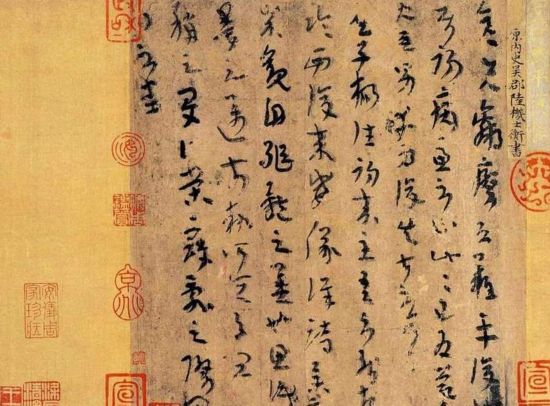 原内史吳郡陸機士衡書
彦先羸瘵恐難平復
初病慮不止此〻已為慶
使唯男幸為復失前憂
子楊往初來主吾不能盡
西復來威儀詳跱舉
觀自軀體之美也思識
邁前執所恒有宜
稱之夏伯榮寇亂之際
問不悉